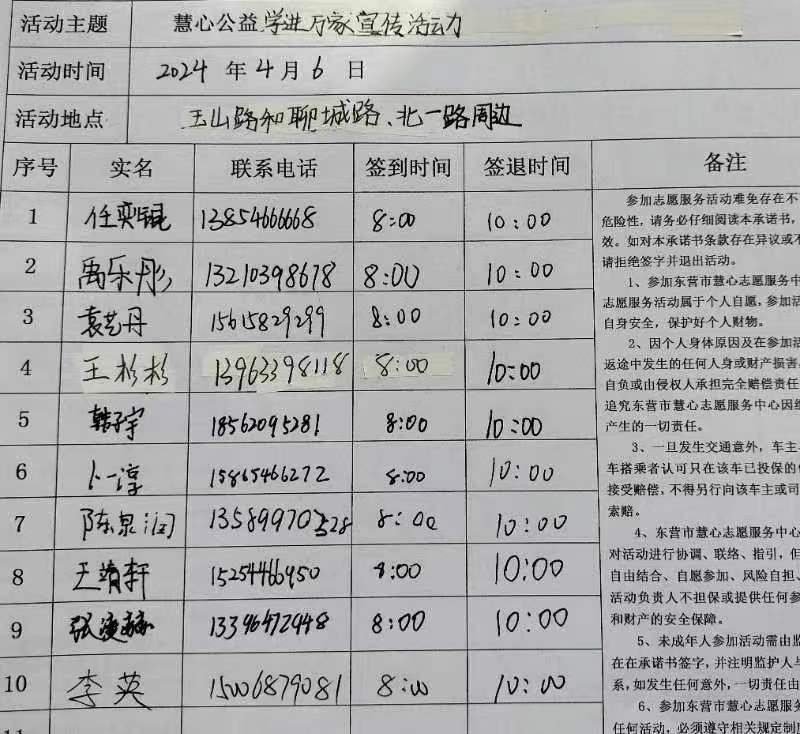 活动主题 慧心公益学进万家宣传活动
活动时间 2024 年 4 月 6 日
活动地点 玉山路和聊城路、北一路周边
序号 实名 联系电话 签到时间 签退时间 备注
1 任奕锟 13854666668 8:00 10:00
2 禹乐彤 13210398678 8:00 10:00
3 袁艺丹 15615829299 8:00 10:00
4 王杉杉 13963398118 8:00 10:00
5 韩子宇 18562095281 8:00 10:00
6 卜一淳 15865466272 8:00 10:00
7 陈泉润 13589970528 8:00 10:00
8 王靖轩 15254466950 8:00 10:00
9 张 13396472948 8:00 10:00
10 李英 15006879081 8:00 10:00
参加志愿服务活动难免存在不
危险性，请务必仔细阅读本承诺书，
效。如对本承诺书条款存在异议或不
请拒绝签字并退出活动。
1、参加东营市慧心志愿服务中
志愿服务活动属于个人自愿，参加活
自身安全，保护好个人财物。
2、因个人身体原因及在参加活
返途中发生的任何人身或财产损害
自负或由侵权人承担完全赔偿责任
追究东营市慧心志愿服务中心因组
产生的一切责任。
3、一旦发生交通意外，车主
车搭乘者认可只在该车已投保的
接受赔偿，不得另行向该车主或司
索赔。
4、东营市慧心志愿服务中心
对活动进行协调、联络、指引，但
自由结合、自愿参加、风险自担、
活动负责人不担保或提供任何参
和财产的安全保障。
5、未成年人参加活动需由监
在在承诺书签字，并注明监护人与
系，如发生任何意外，一切责任由
6、参加东营市慧心志愿服务
任何活动，必须遵守相关规定制度